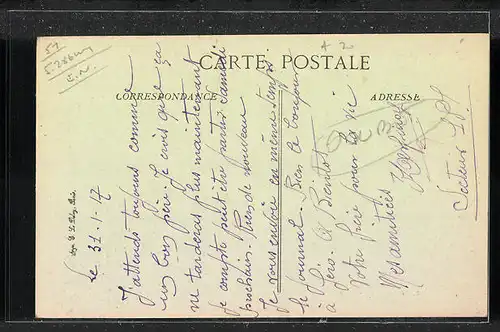 CARTE POSTALE
CORRESPONDANCE
ADRESSE
le 31.1.17
J'attends toujours comme
un bon père. Je crois que ça
ne tardera plus maintenant
je compte peut être partir samedi
prochain. Rien de nouveau
Je vous envoie en même temps
le journal. Bien le bonjour
à Bientot
votre frère pour la vie
Mes amitiés
Secteur